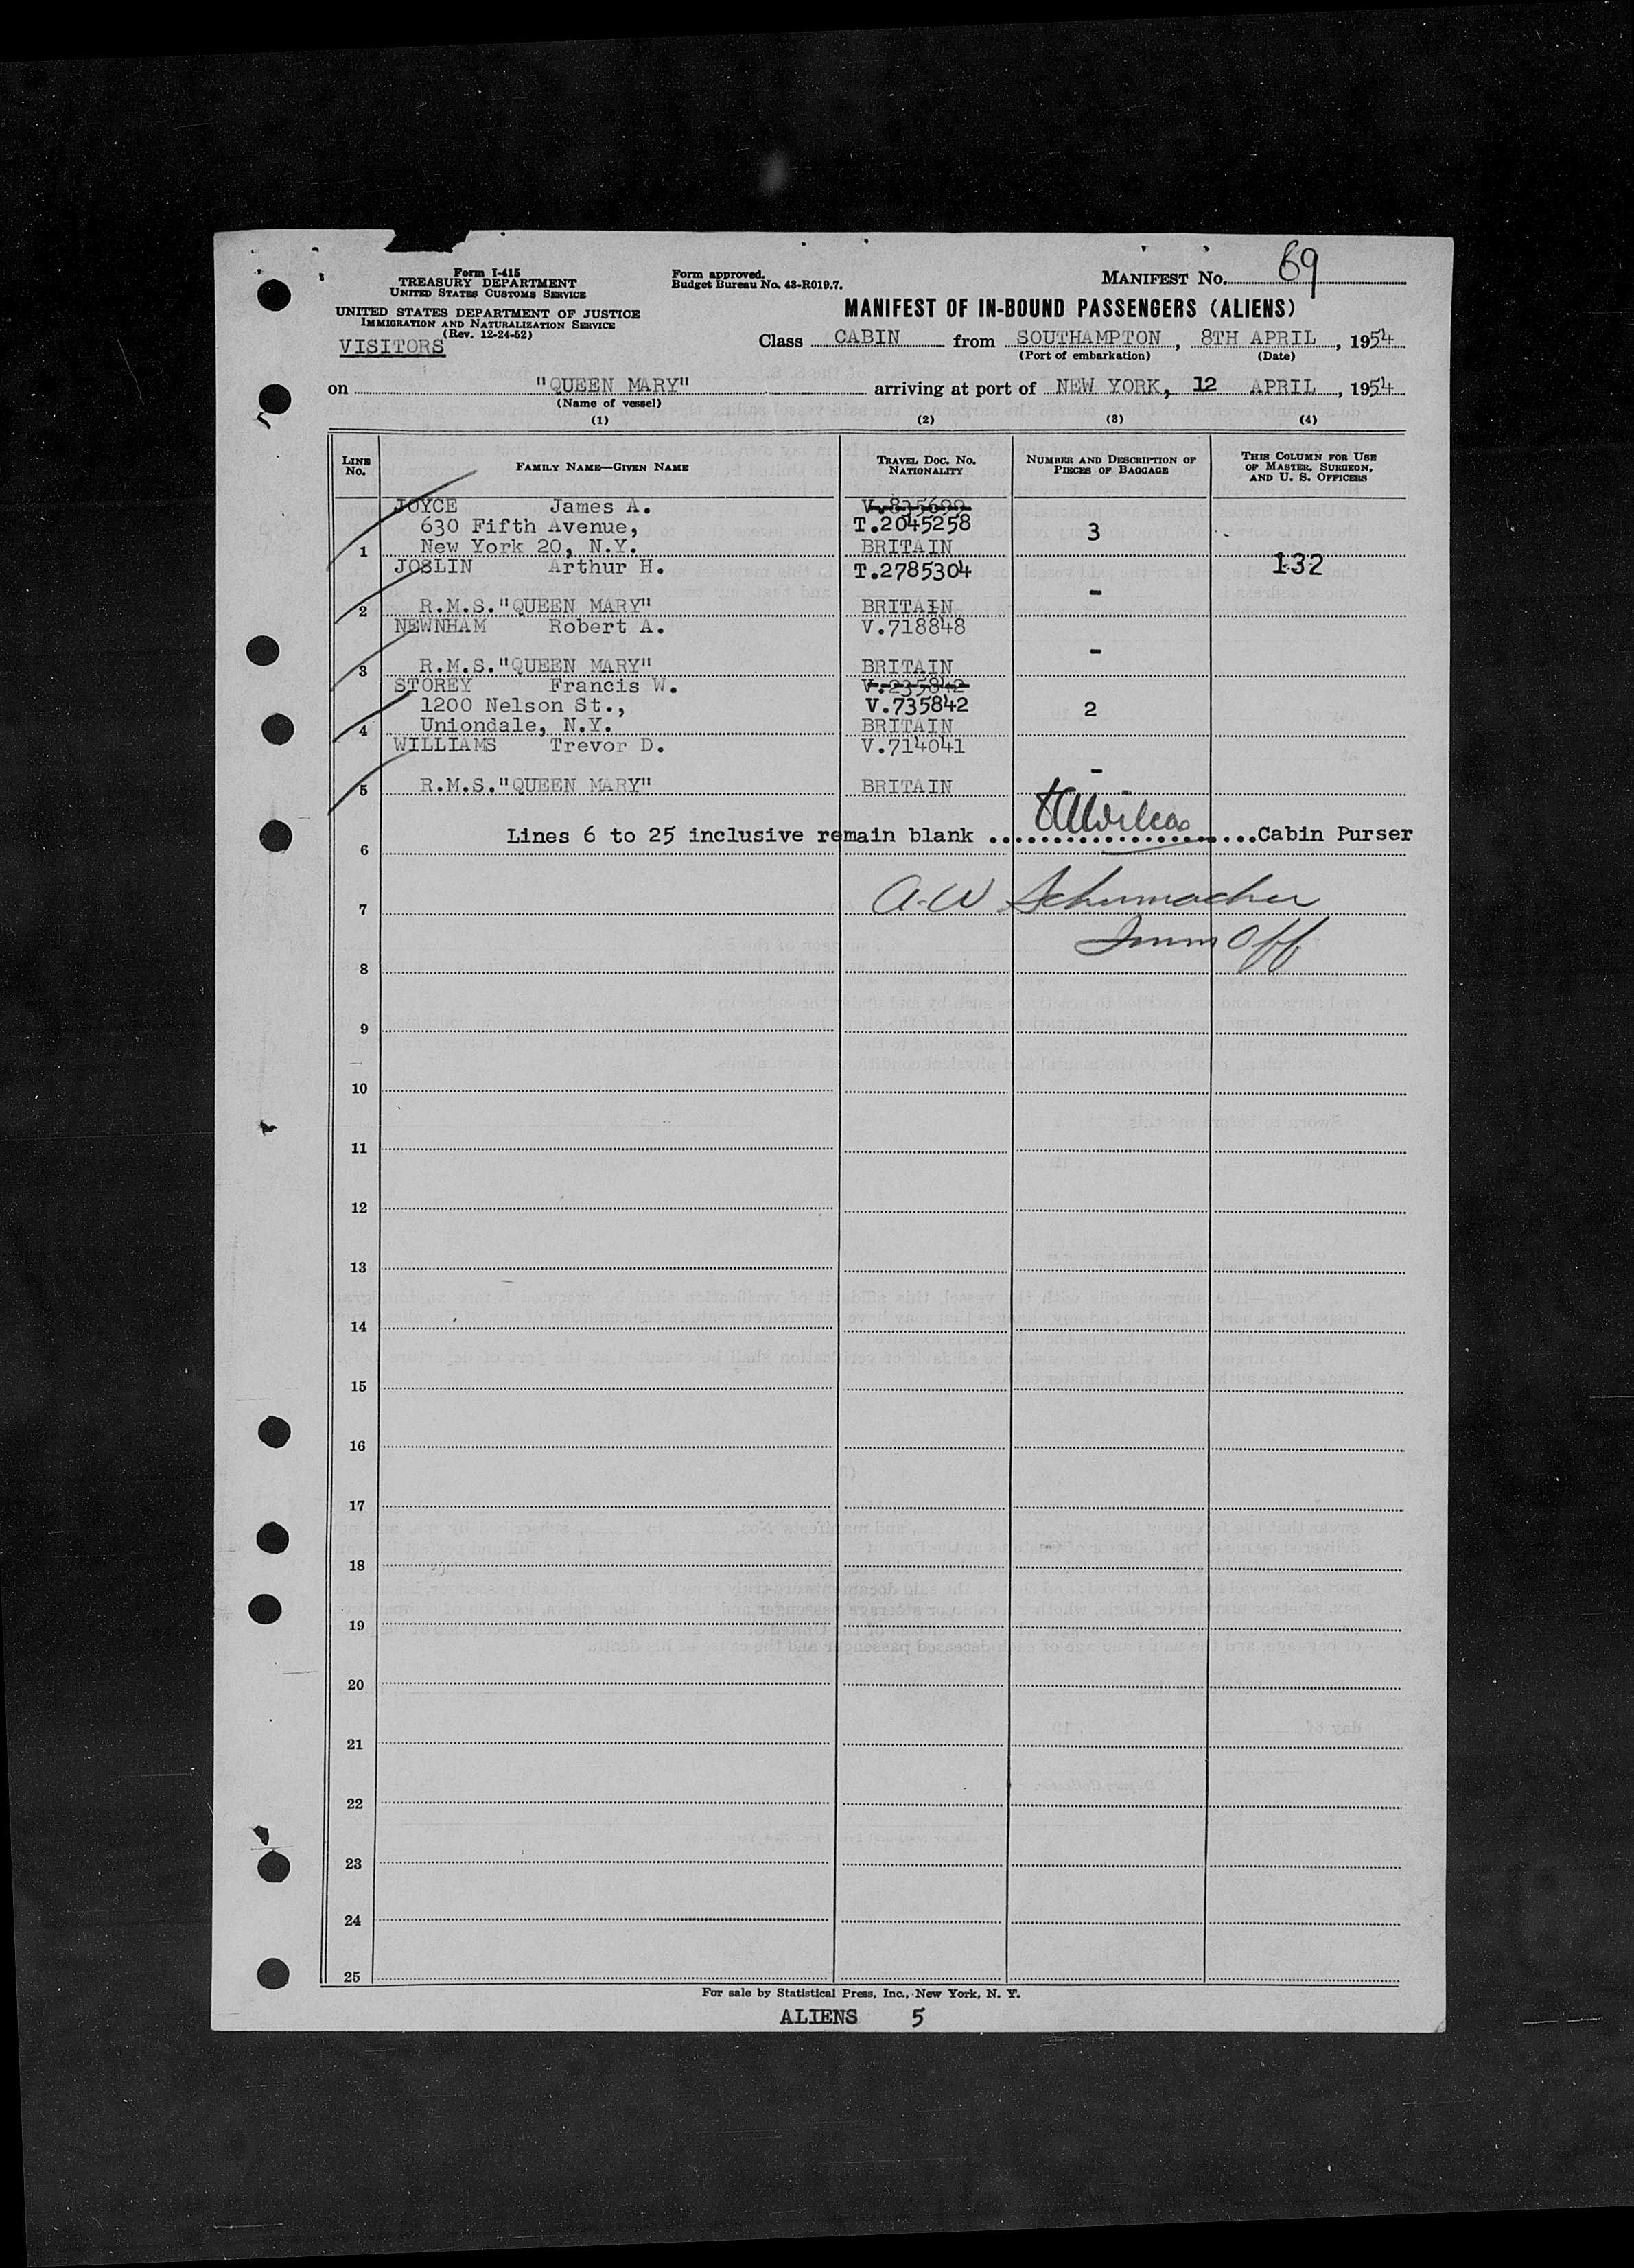 Form I-415
TREASURY DEPARTMENT
UNITED STATES CUSTOMS SERVICE
UNITED STATES DEPARTMENT OF JUSTICE
IMMIGRATION AND NATURALIZATION SERVICE
(Rev. 12-24-52)
VISITORS
Form approved.
Budget Bureau No. 43-R019.7.
MANIFEST No. 69
MANIFEST OF IN-BOUND PASSENGERS (ALIENS)
Class CABIN from SOUTHAMPTON, 8TH APRIL, 1954
(Port of embarkation) (Date)
on "QUEEN MARY" arriving at port of NEW YORK, 12 APRIL, 1954
(Name of vessel)
(1) (2) (3) (4)
LINE No. FAMILY NAME—GIVEN NAME TRAVEL DOC. No. NATIONALITY NUMBER AND DESCRIPTION OF PIECES OF BAGGAGE THIS COLUMN FOR USE OF MASTER, SURGEON, AND U. S. OFFICERS
JOYCE James A. V.835699
630 Fifth Avenue, T.2045258 3
1 New York 20, N.Y. BRITAIN
JOSLIN Arthur H. T.2785304 132
-
2 R.M.S."QUEEN MARY" BRITAIN
NEWNHAM Robert A. V.718848
-
3 R.M.S."QUEEN MARY" BRITAIN
STOREY Francis W. V.235842
1200 Nelson St., V.735842 2
4 Uniondale, N.Y. BRITAIN
WILLIAMS Trevor D. V.714041
-
5 R.M.S."QUEEN MARY" BRITAIN
Lines 6 to 25 inclusive remain blank ........ Cabin Purser
6
A-W Schumacher
7
Imm Off
8
9
10
11
12
13
14
15
16
17
18
19
20
21
22
23
24
25
For sale by Statistical Press, Inc., New York, N. Y.
ALIENS 5